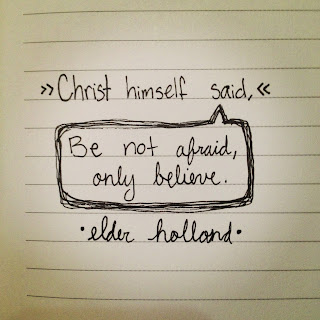 »Christ himself said,«
Be not afraid,
only believe.
•elder holland•